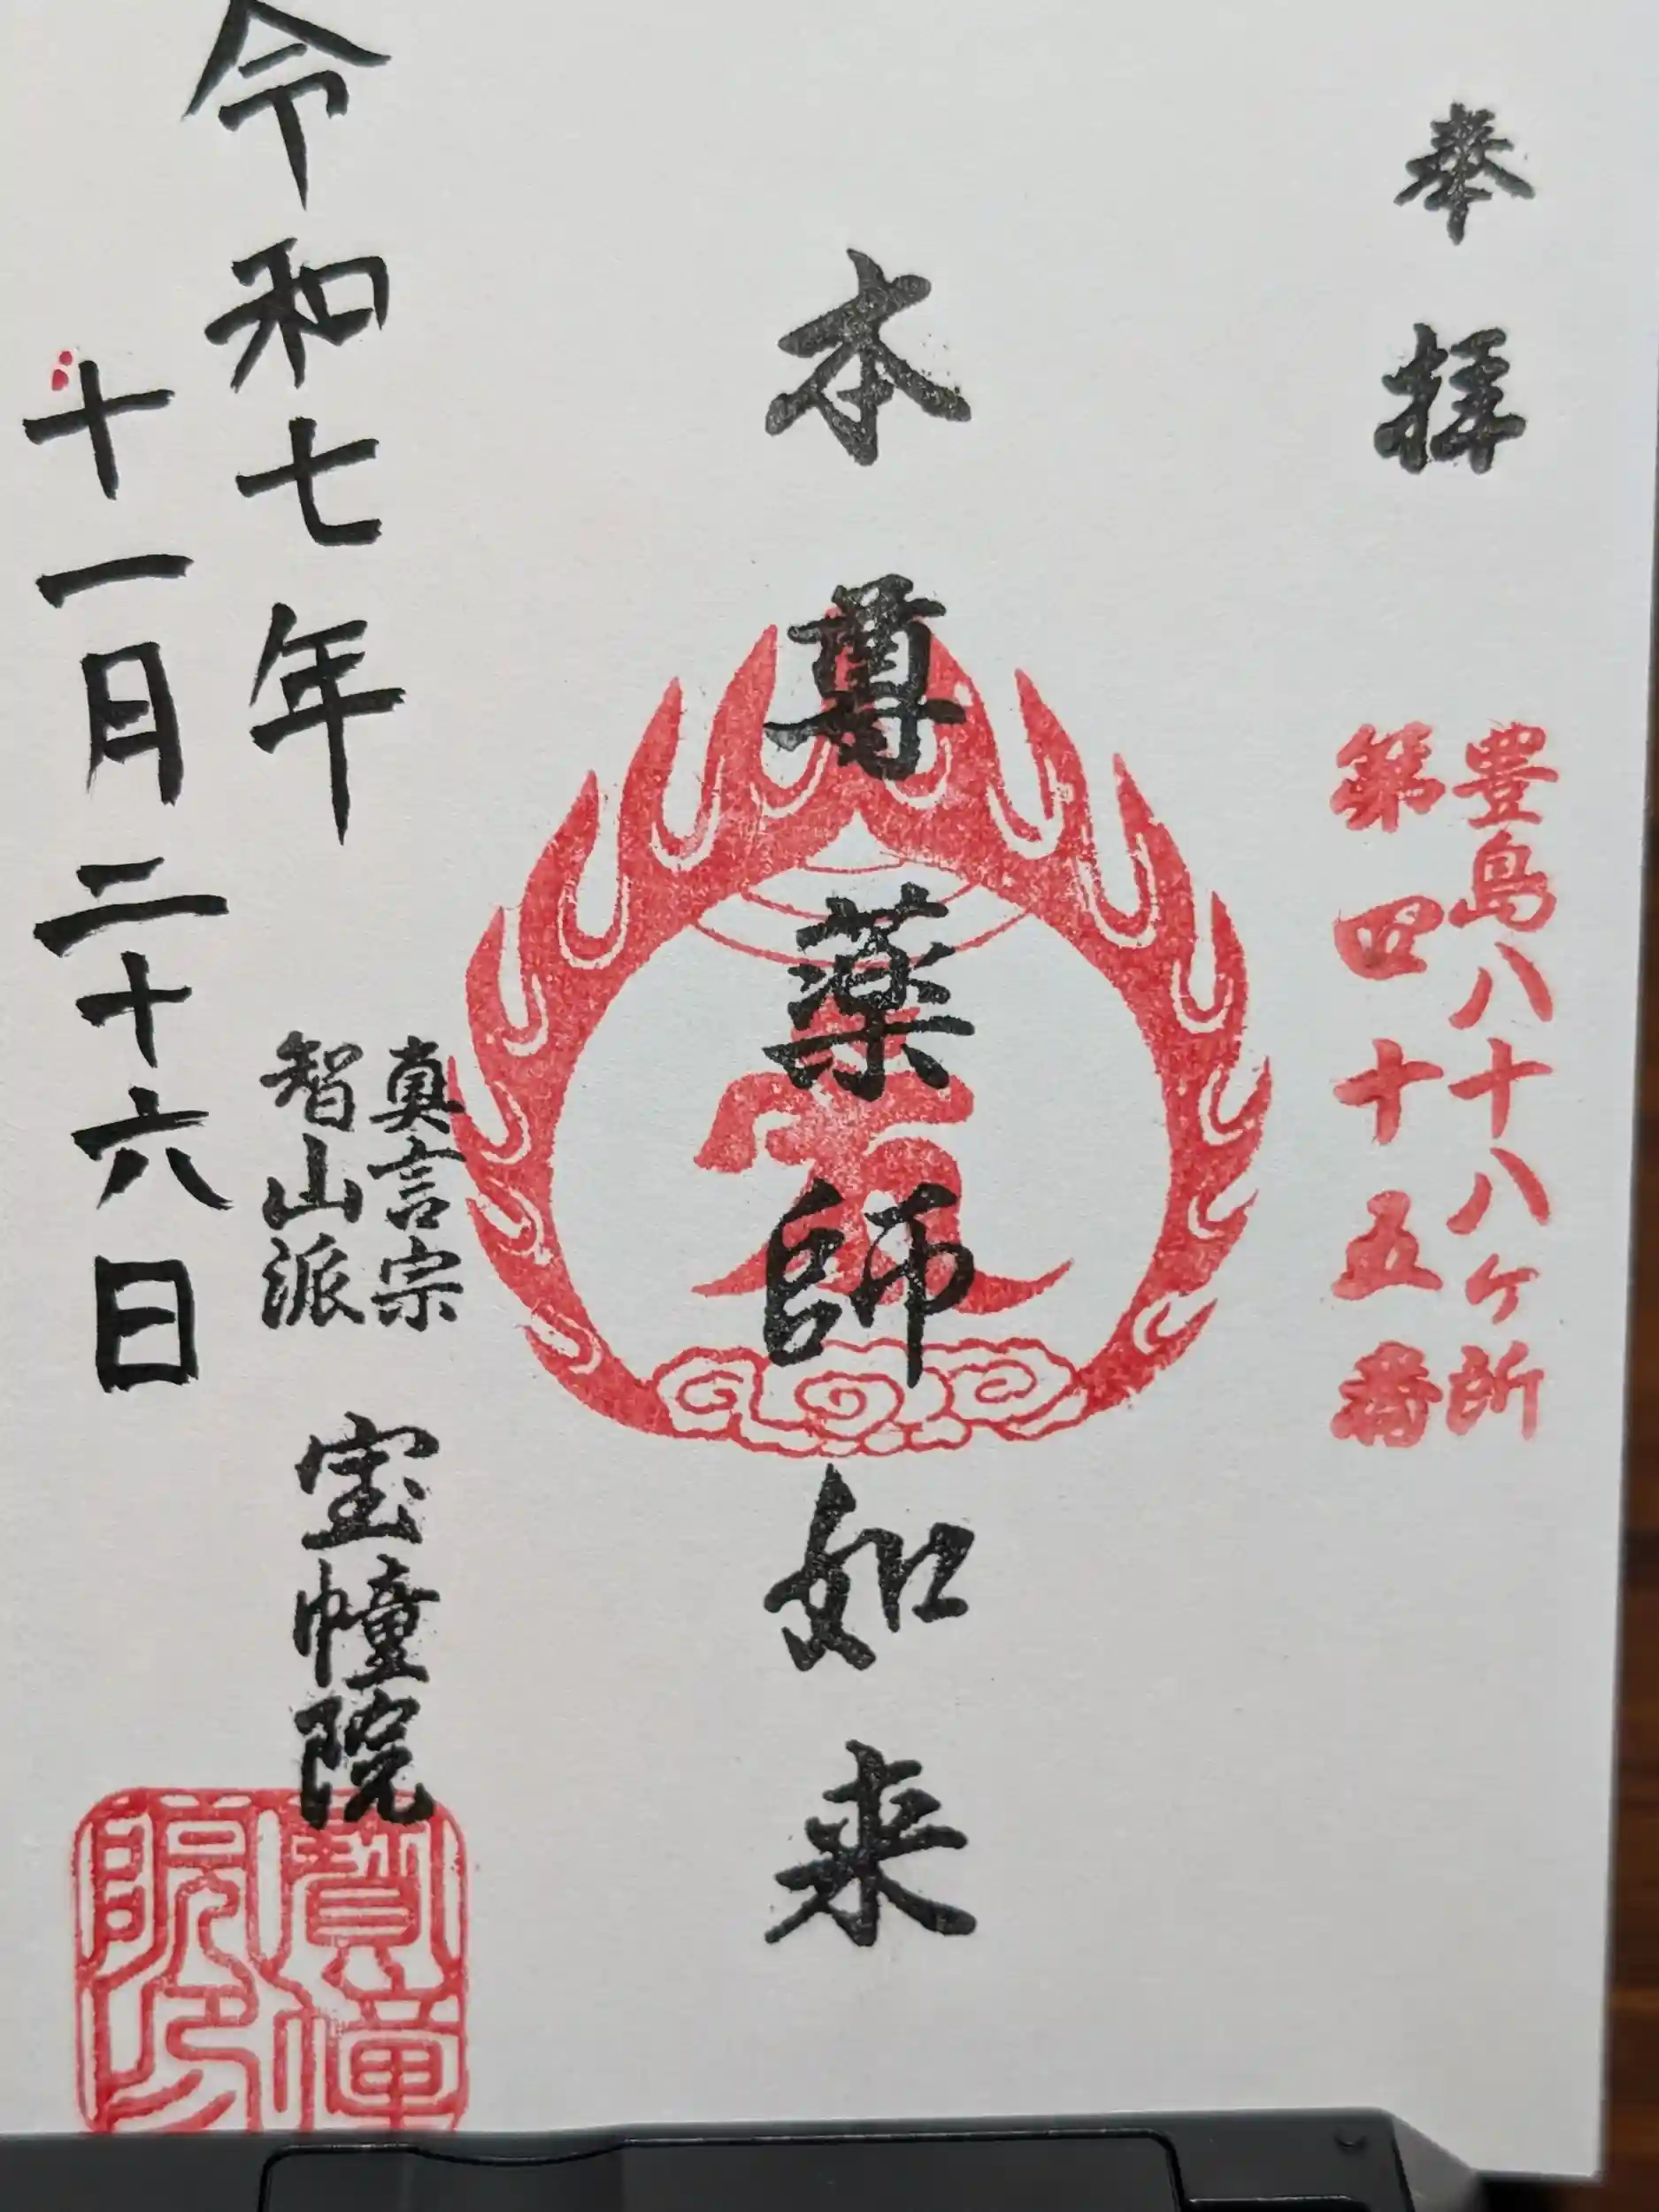 奉拝
豊島八十八ケ所
第四十五番
本尊薬師如来
真言宗
智山派
宝幢院
令和七年
十一月二十六日
寶幢
院印